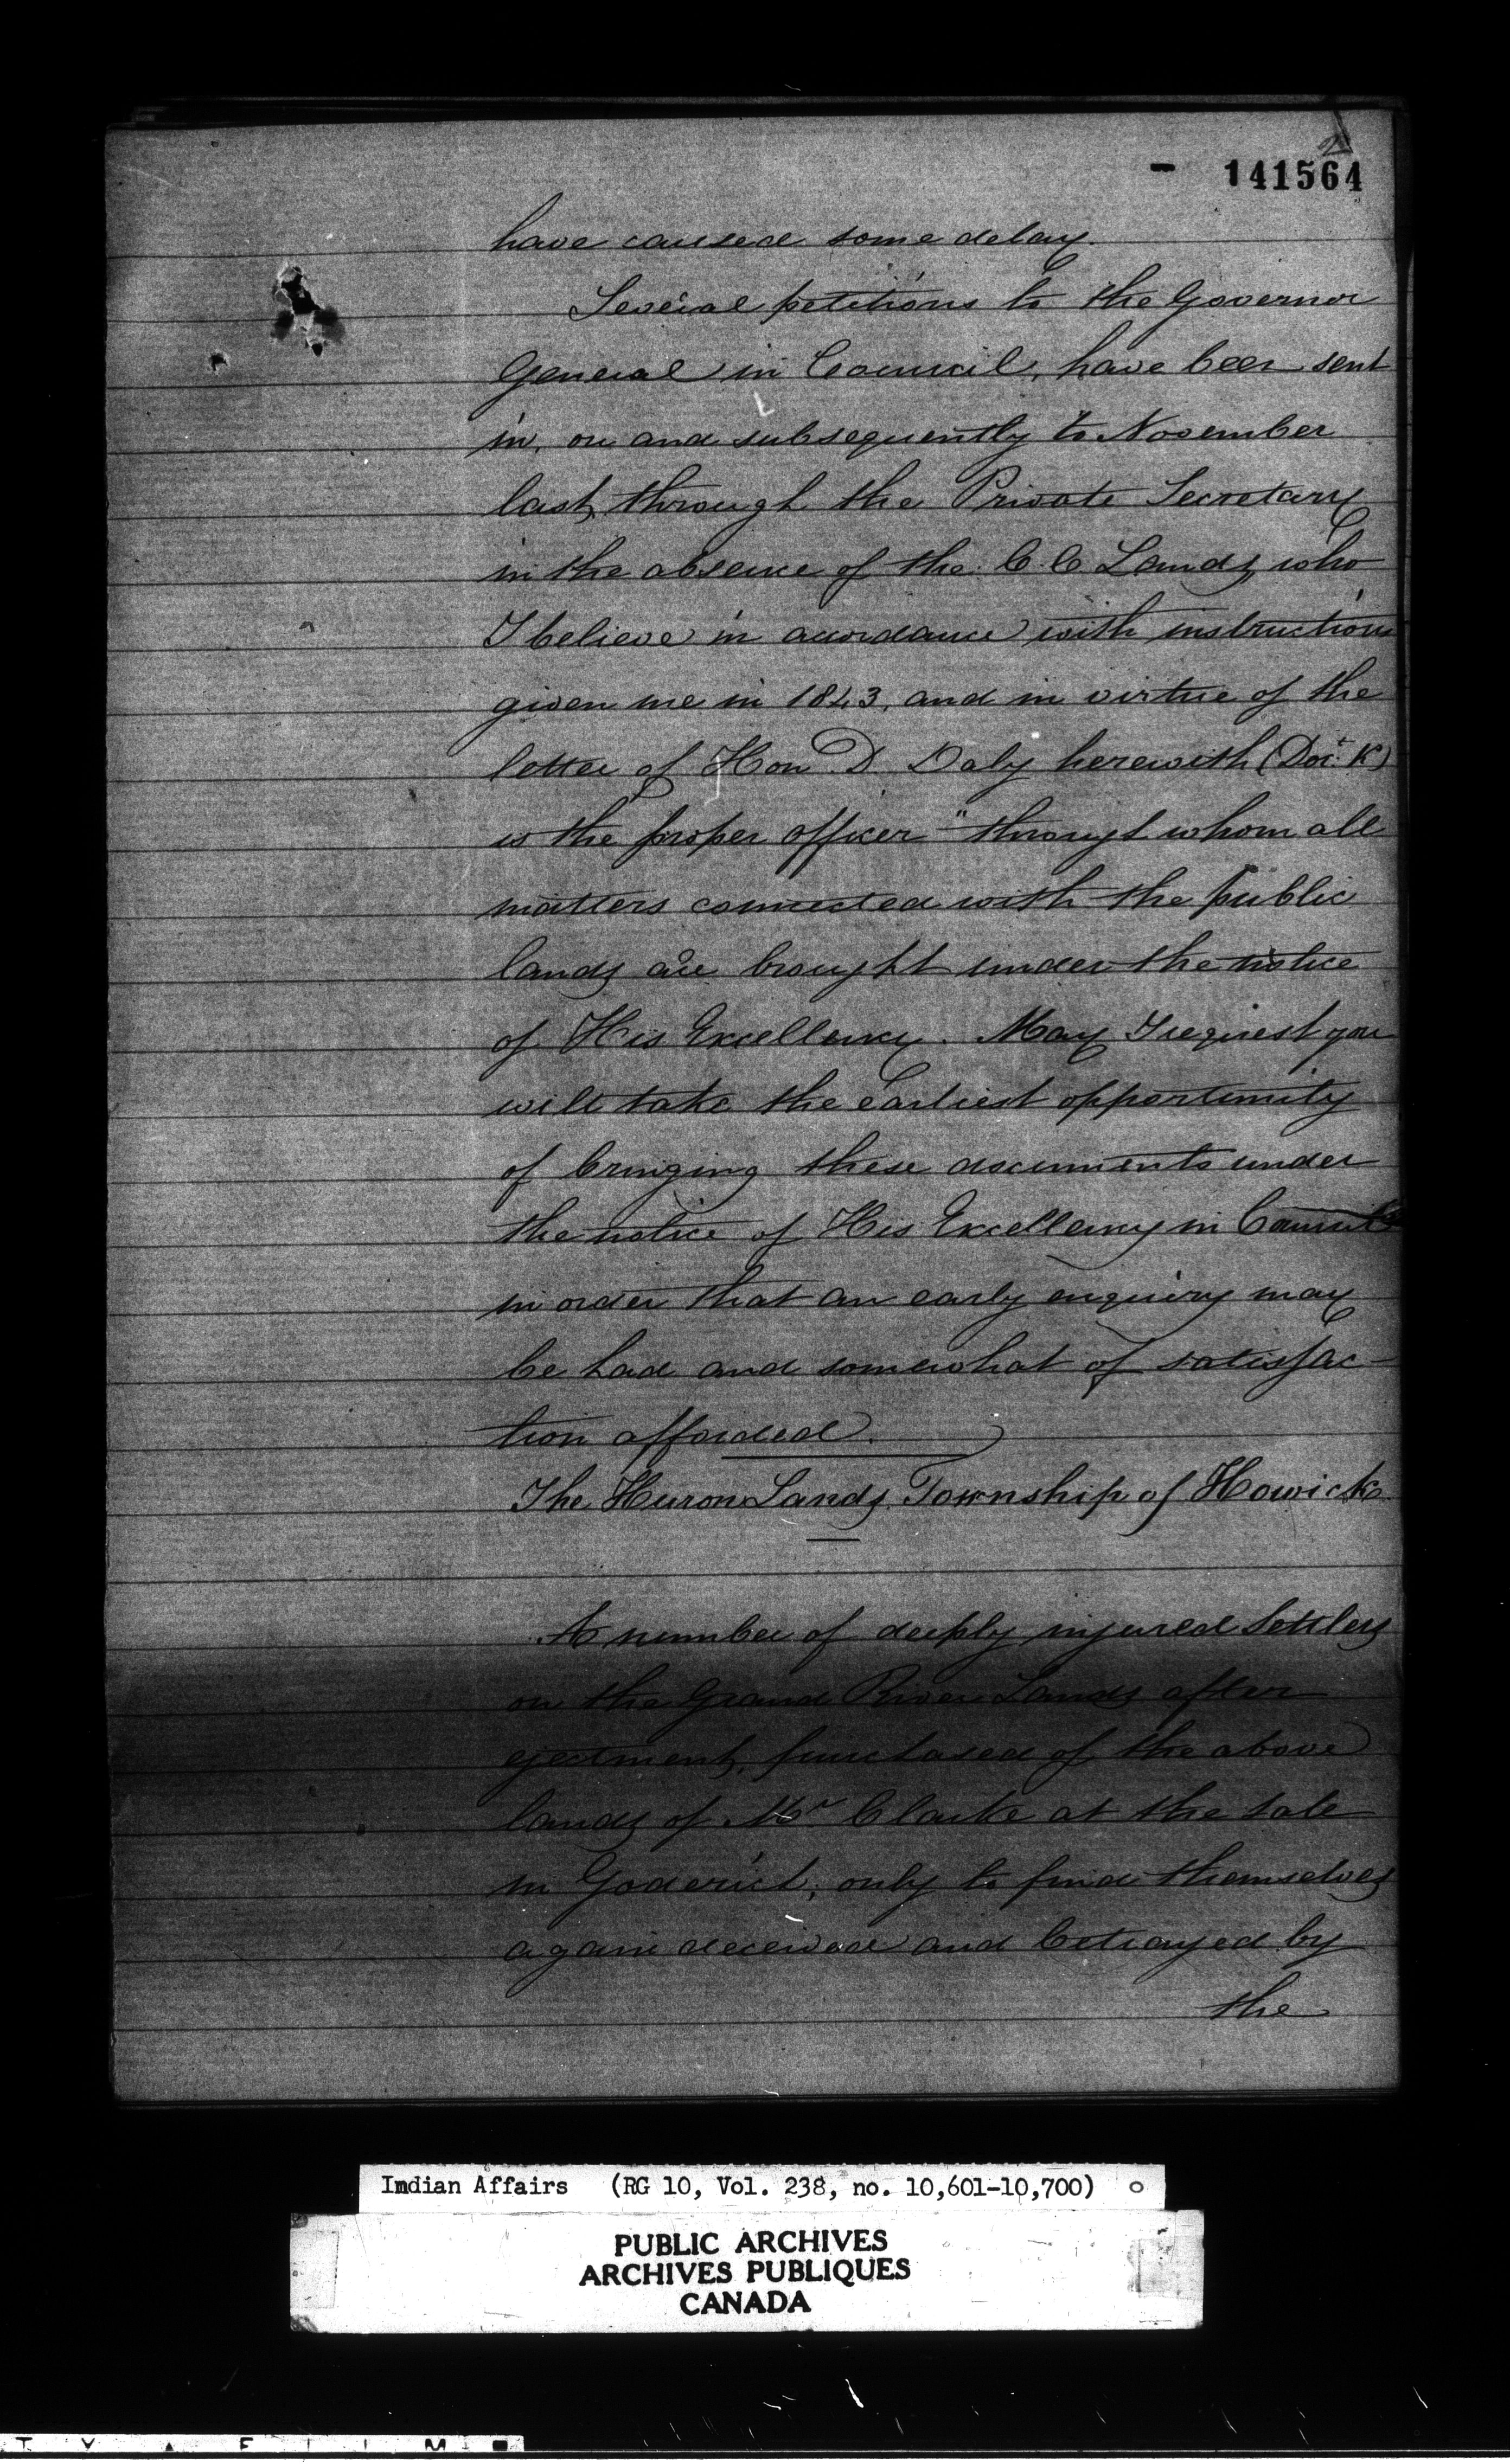 2
- 141564
have caused some delay.
Several petitions to the Governor
General in Council, have been sent
in, on and subsequently to November
last, through the Private Secretary
in the absence of the C. C. Lands, who
I believe in accordance with instructions
given me in 1843, and in virtue of the
letter of Hon. D. Daly herewith (Doct. K)
is the proper officer "through whom all
matters connected with the public
lands are brought under the notice
of His Excellency. May I request you
will take the earliest opportunity
of bringing these documents under
the notice of His Excellency in Council
in order that an early enquiry may
be had and somewhat of satisfac-
tion afforded.
The Huron Lands, Township of Howick
A number of deeply injured Settlers
on the Grand River Lands after
ejectment, purchased of the above
lands of Mr Clarke at the sale
in Goderich, only to find themselves
again deceived and betrayed by
the
Indian Affairs (RG 10, Vol. 238, no. 10,601-10,700)
PUBLIC ARCHIVES
ARCHIVES PUBLIQUES
CANADA